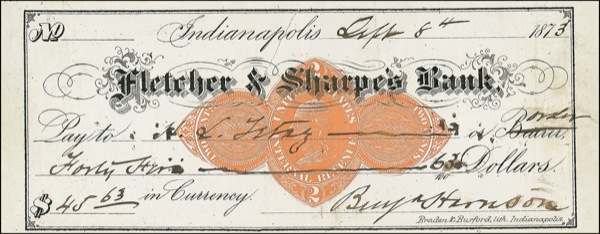 No Indianapolis Sept 8th 1873
Fletcher & Sharpe's Bank,
Pay to or Bearer, order
Forty Five 63/100 Dollars.
$ 45 63 in Currency. Benj Harrison
UNITED STATES
INTERNAL REVENUE
2
Braden & Burford, lith. Indianapolis.